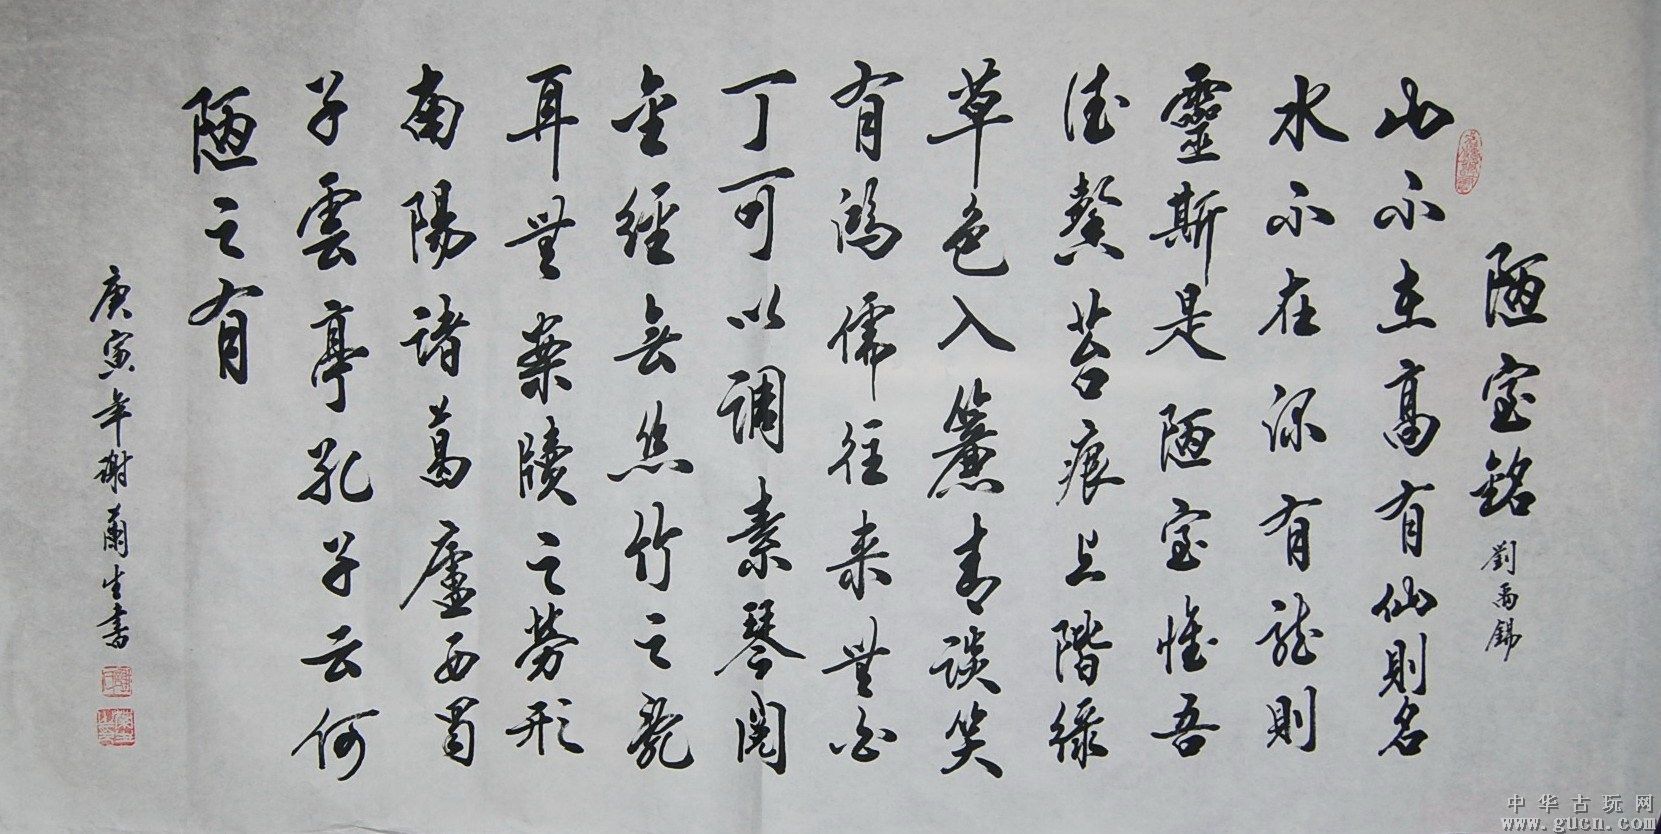 陋室銘 劉禹錫
山不在高有仙則名
水不在深有龍則
靈斯是陋室惟吾
德馨苔痕上階綠
草色入簾青談笑
有鴻儒往来無白
丁可以調素琴閱
金經無絲竹之亂
耳無案牘之勞形
南陽諸葛廬西蜀
子雲亭孔子云何
陋之有
庚寅年謝蘭生書
中华古玩网
www.gucn.com